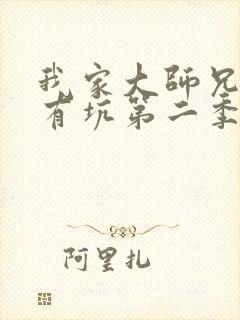 我家大师兄
有坑第二季
阿里扎